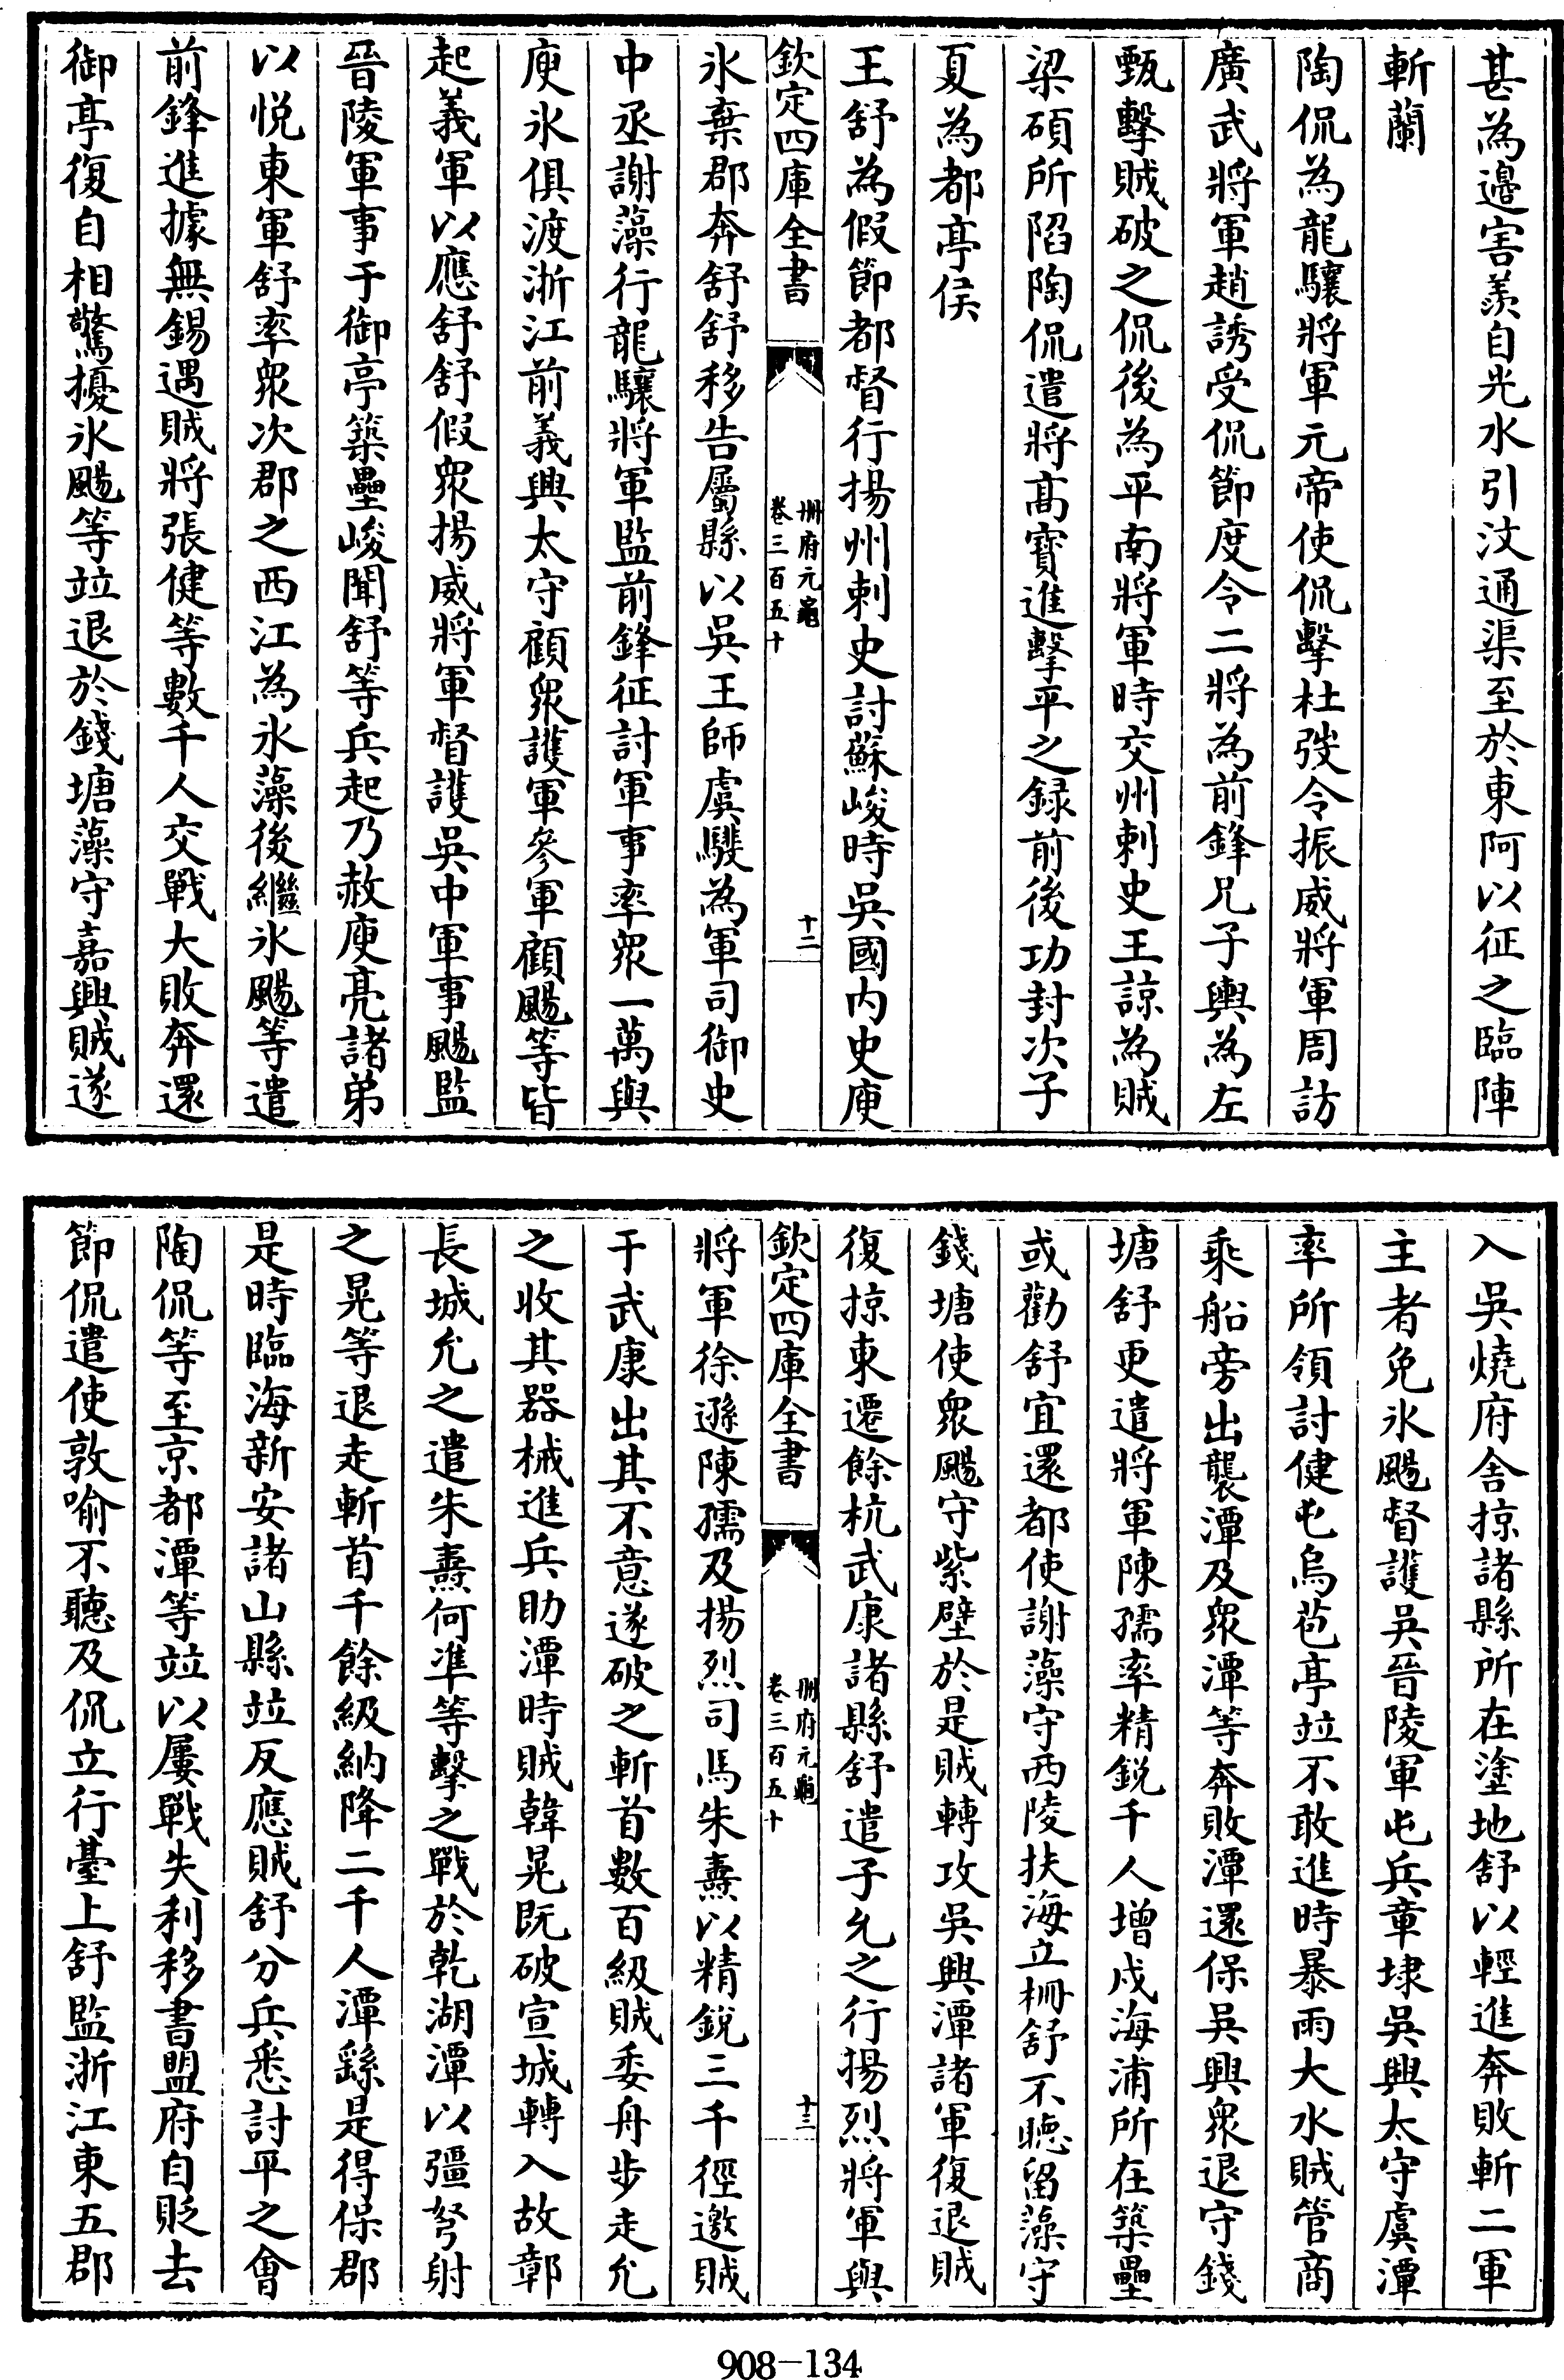 甚為邉害羨自光水引汶通渠至於東阿以征之臨陣
斬蘭
陶侃為龍驤將軍元帝使侃擊杜弢令振威將軍周訪
廣武將軍趙誘受侃節度令二將為前鋒兄子輿為左
甄擊賊破之侃後為平南將軍時交州刺史王諒為賊
梁碩所陷陶侃遣將髙寶進擊平之録前後功封次子
夏為都亭侯
王舒為假節都督行揚州刺史討蘇峻時吳國内史庾
欽定四庫全書
冊府元龜
卷三百五十
十二
氷棄郡奔舒舒移告屬縣以吳王師虞騤為軍司御史
中丞謝藻行龍驤將軍監前鋒征討軍事率衆一萬與
庾氷俱渡浙江前義興太守顧衆護軍參軍顧颺等皆
起義軍以應舒舒假衆揚威將軍督護吳中軍事颺監
晉陵軍事于御亭築壘峻聞舒等兵起乃赦庾亮諸弟
以悅東軍舒率衆次郡之西江為氷藻後繼氷颺等遣
前鋒進據無錫遇賊將張健等數千人交戰大敗奔還
御亭復自相驚擾氷颺等竝退於錢塘藻守嘉興賊遂
入吳燒府舎掠諸縣所在塗地舒以輕進奔敗斬二軍
主者免氷颺督護吳晉陵軍屯兵章埭吳興太守虞潭
率所領討健屯烏苞亭竝不敢進時暴雨大水賊管商
乘船旁出襲潭及衆潭等奔敗潭還保吳興衆退守錢
塘舒更遣將軍陳孺率精銳千人增戍海浦所在築壘
或勸舒宜還都使謝藻守西陵扶海立柵舒不聽留藻守
錢塘使衆颺守紫壁於是賊轉攻吳興潭諸軍復退賊
復掠東遷餘杭武康諸縣舒遣子允之行揚烈將軍與
欽定四庫全書
冊府元龜
卷三百五十
十三
將軍徐遜陳孺及揚烈司馬朱燾以精銳三千徑邀賊
于武康出其不意遂破之斬首數百級賊委舟步走允
之收其器械進兵助潭時賊韓晃既破宣城轉入故鄣
長城允之遣朱燾何準等擊之戰於乾湖潭以彊弩射
之晃等退走斬首千餘級納降二千人潭繇是得保郡
是時臨海新安諸山縣竝反應賊舒分兵悉討平之會
陶侃等至京都潭等竝以屢戰失利移書盟府自貶去
節侃遣使敦喻不聽及侃立行臺上舒監浙江東五郡
908-134